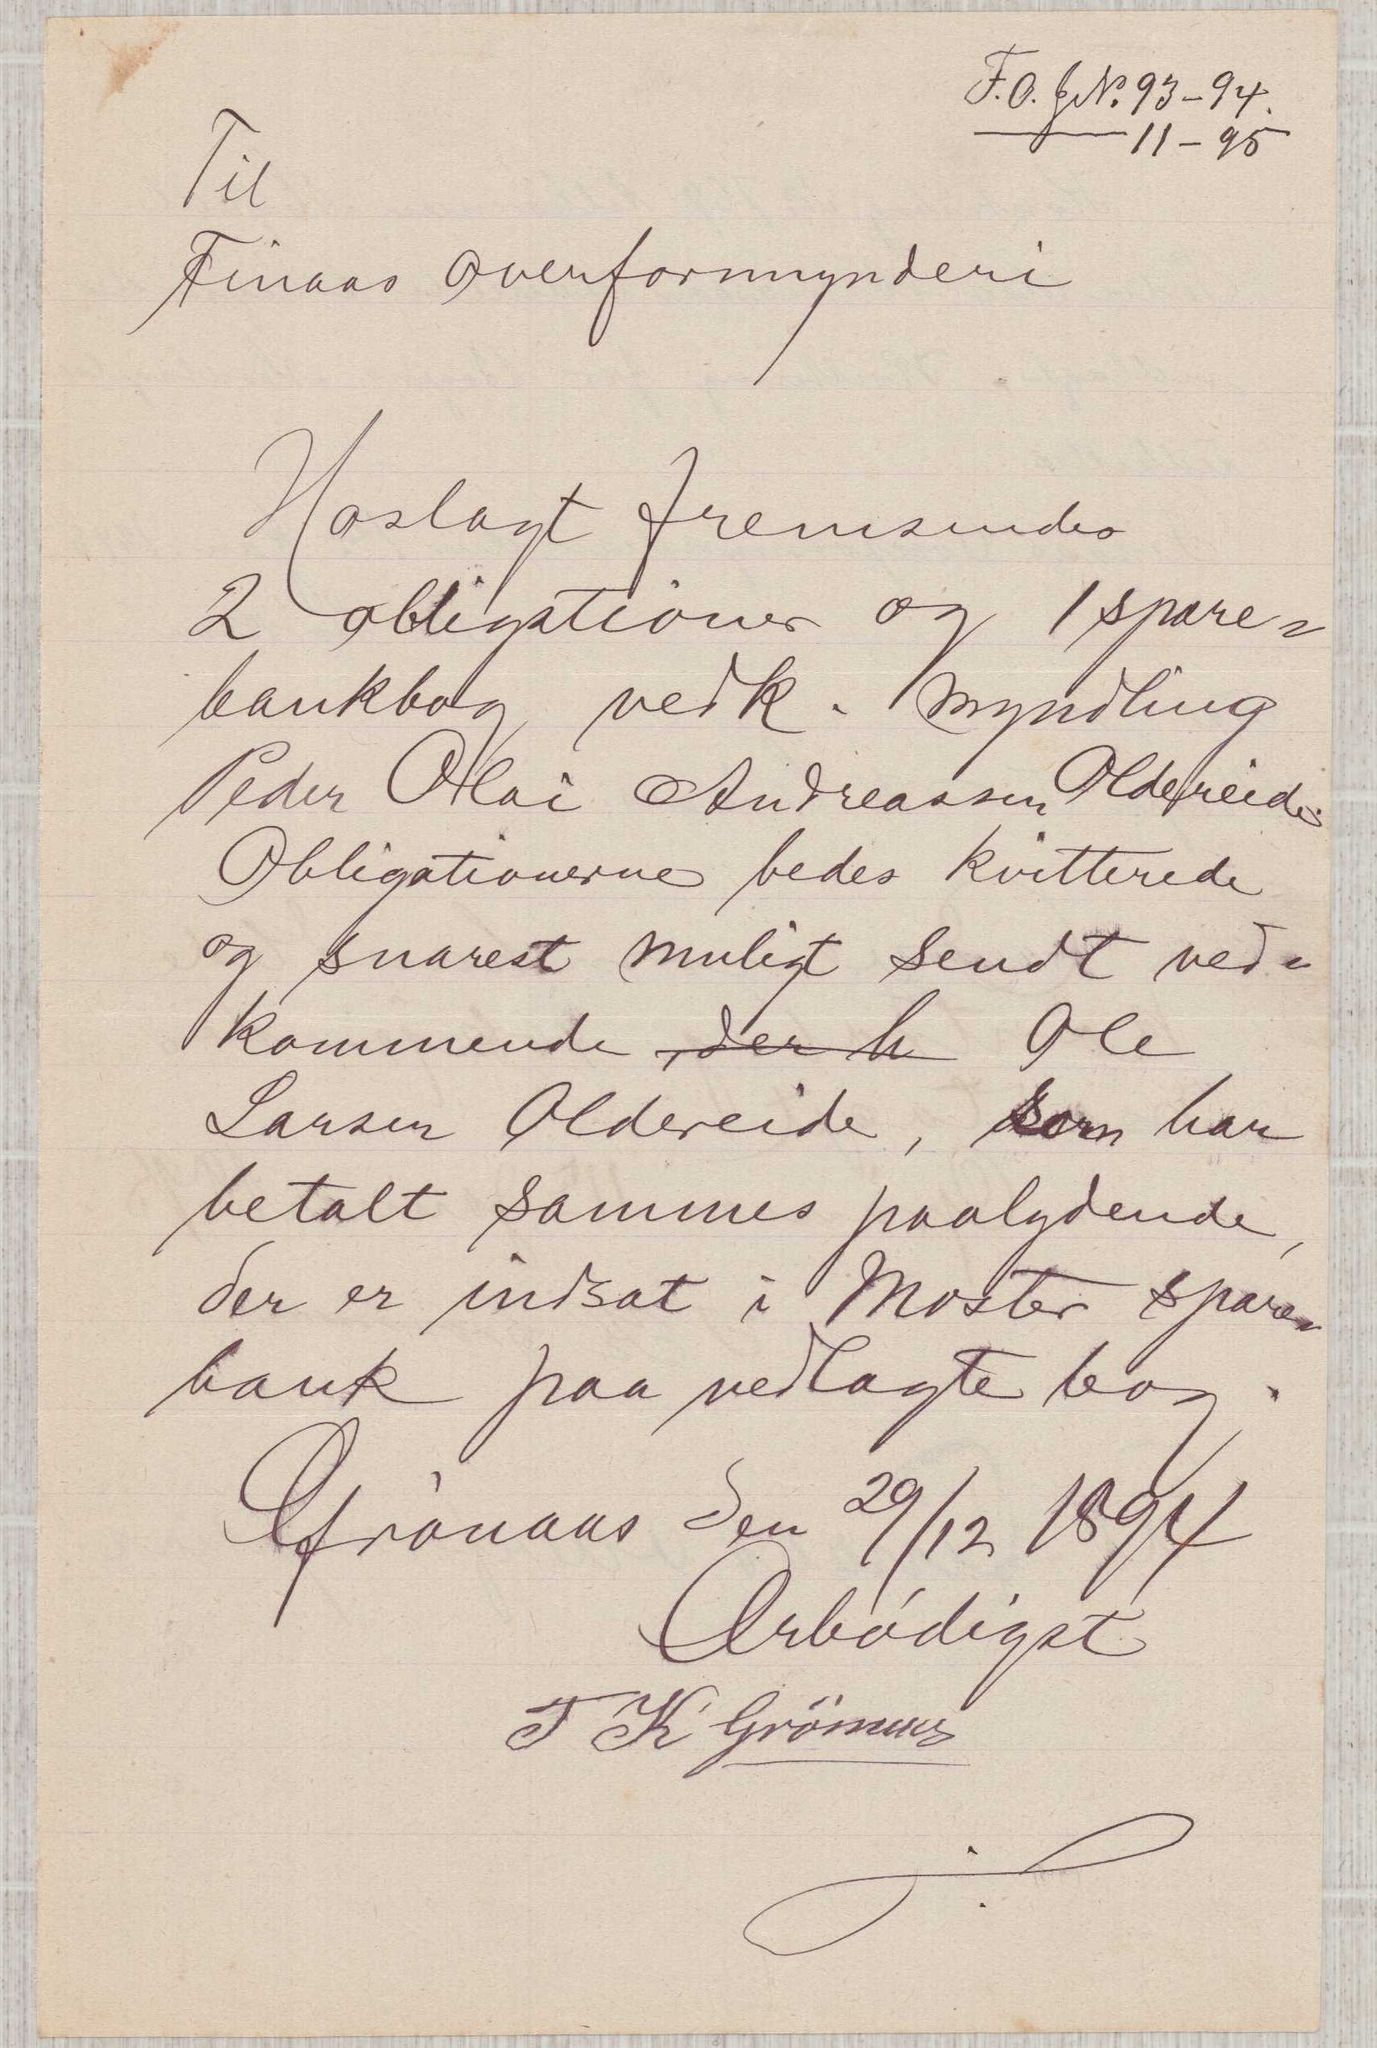 F.O. J.N. 93-94.
11-95
Til
Finaas overformynderi
Hoslagt fremsendes
2 obligationer og 1 spare-
bankbog vedk. myndling
Peder Olai Andreassen Oldereide.
Obligationerne bedes kvitterede
og snarest muligt sendt ved-
kommende der h Ole
Larsen Oldereide, som har
betalt sammes paalydende,
der er indsat i Moster spare-
bank paa vedlagte bog.
Grönaas den 29/12 1894
Ærbödigst
T K Grönaas